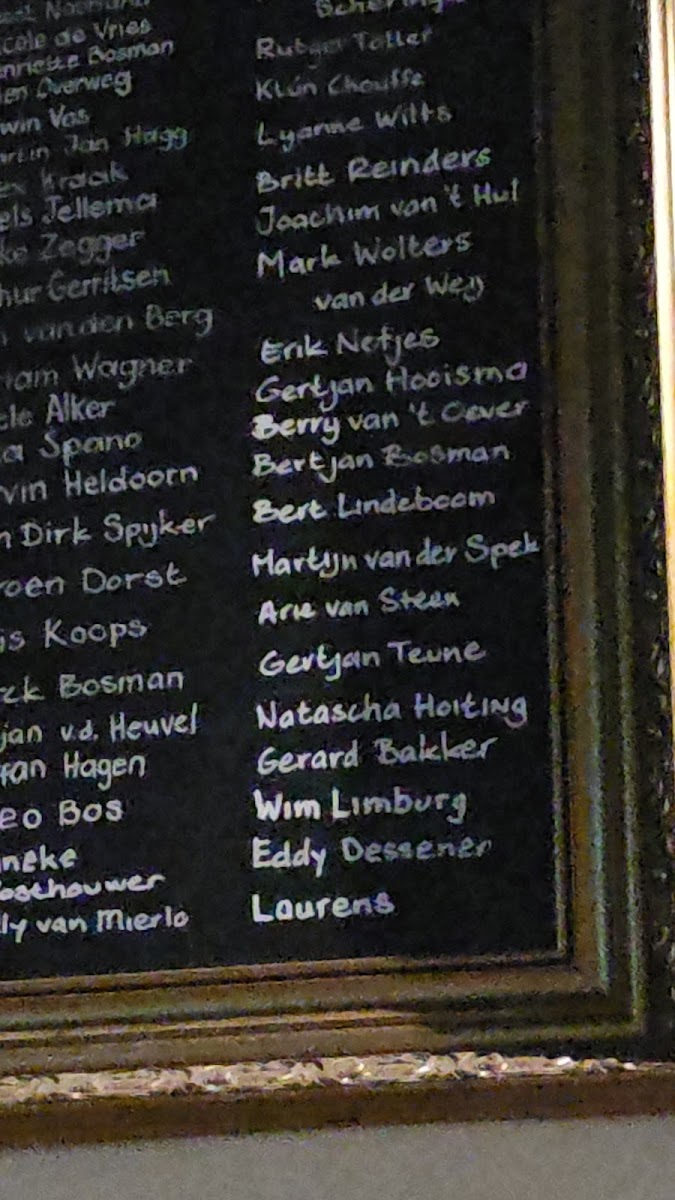 de Vries
Bosman
Overweg
win Vos
Jan Hagg
Kraak
els Jellema
ke Zegger
hur Gerritsen
van den Berg
iam Wagner
ele Alker
a Spano
vin Heldoorn
n Dirk Spijker
roen Dorst
is Koops
ck Bosman
jan v.d. Heuvel
fan Hagen
eo Bos
nneke
oschouwer
lly van Mierlo
Rutger
Chouffe
Lyanne Wilts
Britt Reinders
Joachim van 't Hul
Mark Wolters
van der Weij
Erik Netjes
Gertjan Hooisma
Berry van 't Oever
Bertjan Bosman
Bert Lindeboom
Martijn van der Spek
Arie van Steen
Gertjan Teune
Natascha Hoiting
Gerard Bakker
Wim Limburg
Eddy Dessener
Laurens